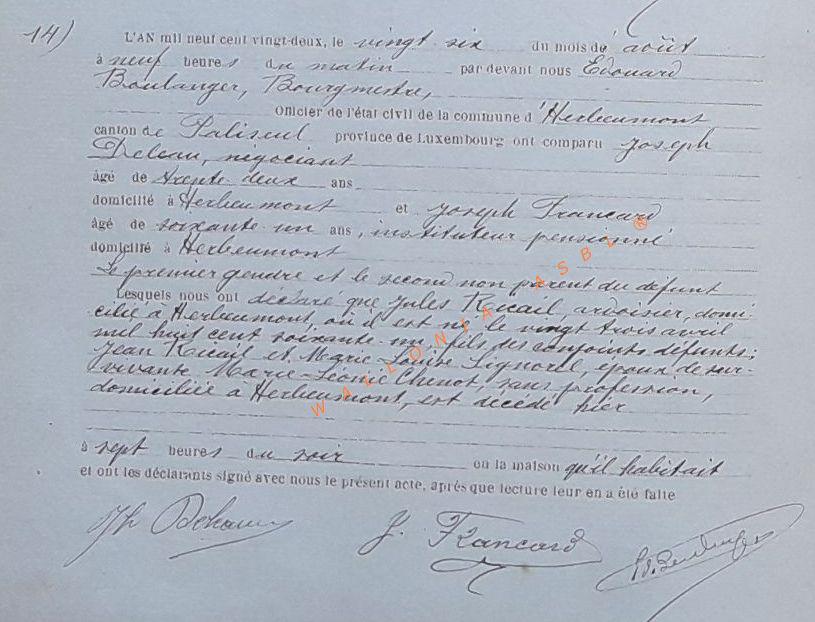 14)
L'AN mil neuf cent vingt-deux, le vingt six du mois de août
à neuf heures du matin par devant nous Edouard
Boulanger, Bourgmestre,
Officier de l'état civil de la commune d'Herbeumont
canton de Paliseul province de Luxembourg ont comparu Joseph
négociant
âgé de trente-deux ans
domicilié à Herbeumont et Joseph Francard
âgé de soixante un ans, instituteur pensionné
domicilié à Herbeumont
Le premier gendre et le second non parent du défunt
Lesquels nous ont déclaré que Jules ardoisier, domi-
cilié à Herbeumont, où il est né le vingt trois avril
mil huit cent soixante-un, fils des conjoints défunts:
Jean et Marie-Louise époux de sur-
vivante Marie-Léonie Chenot, sans profession,
domiciliée à Herbeumont, est décédé hier
à sept heures du soir en la maison qu'il habitait
et ont les déclarants signé avec nous le présent acte, après que lecture leur en a été faite
J. Francard
WALLONIA ASBL ®